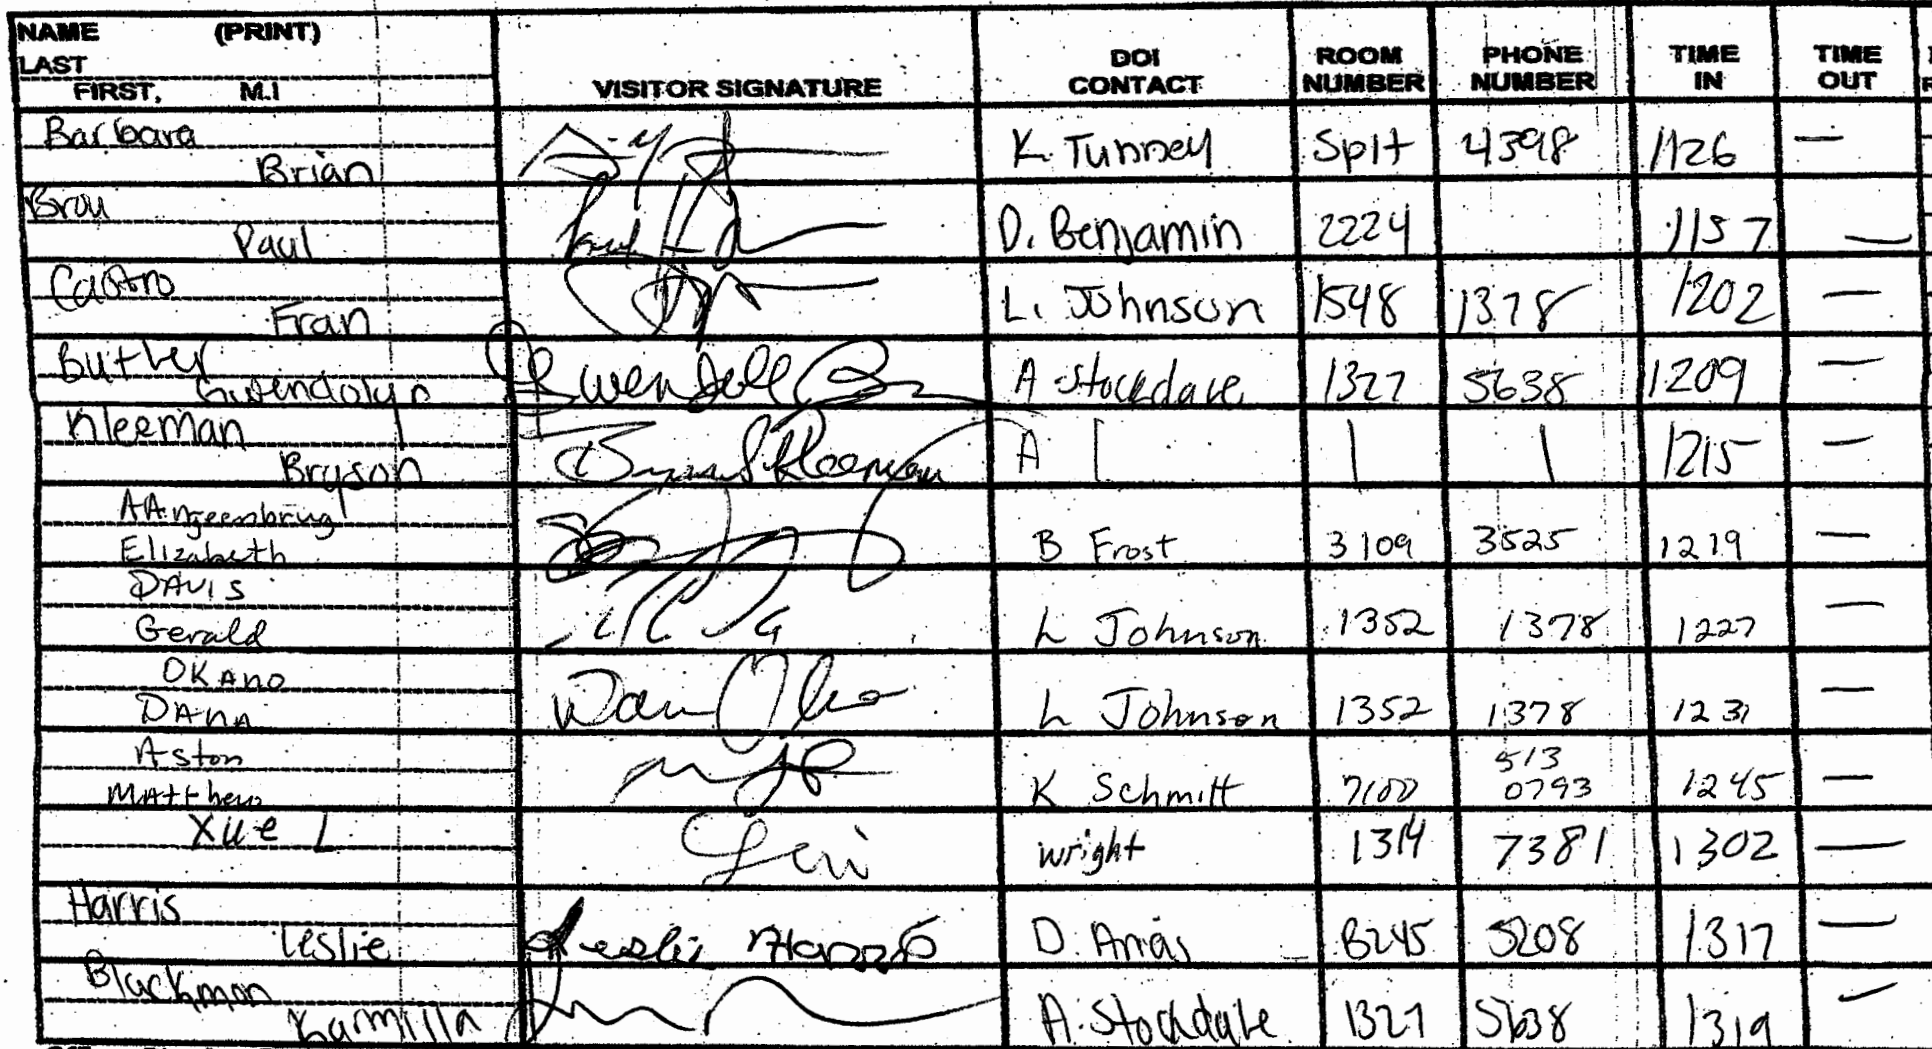 NAME (PRINT)
LAST
FIRST, M.I
VISITOR SIGNATURE
DOI CONTACT
ROOM NUMBER
PHONE NUMBER
TIME IN
TIME OUT
Barbara
Brian K. Tunney Split 4398 1126 —
Brou
Paul D. Benjamin 2224 1157 —
Castro
Fran L. Johnson 1548 1378 1202 —
Butler
Gwendolyn A Stockdale 1327 5638 1209 —
Kleeman
Bryson Kleeman A | | | 1215 —
Elizabeth B Frost 3109 3525 1219 —
DAVIS
Gerald L Johnson 1352 1378 1227 —
OKANO
DANA L Johnson 1352 1378 1231 —
Aston 513
MATThew K Schmitt 7100 0793 1245 —
Xue L wright 1314 7381 1302 —
Harris
Leslie Leslie Harris D. Arias 5208 1317 —
Blackmon
Karmilla A. Stockdale 1327 5638 1319 —